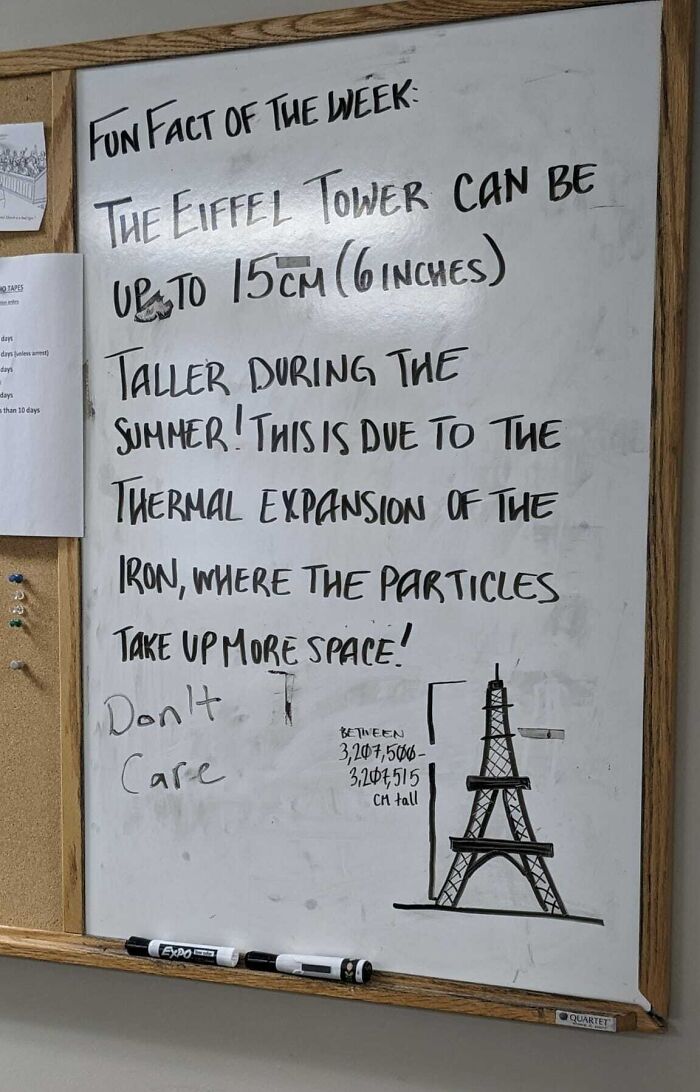 FUN FACT OF THE WEEK:
THE EIFFEL TOWER CAN BE
UP TO 15CM (6 INCHES)
TALLER DURING THE
SUMMER! THIS IS DUE TO THE
THERMAL EXPANSION OF THE
IRON, WHERE THE PARTICLES
TAKE UP MORE SPACE!
Don't
Care
BETWEEN
3,207,500-
3,207,515
CM tall
O TAPES
days
days (unless arrest)
days
days
than 10 days
EXPO
QUARTET